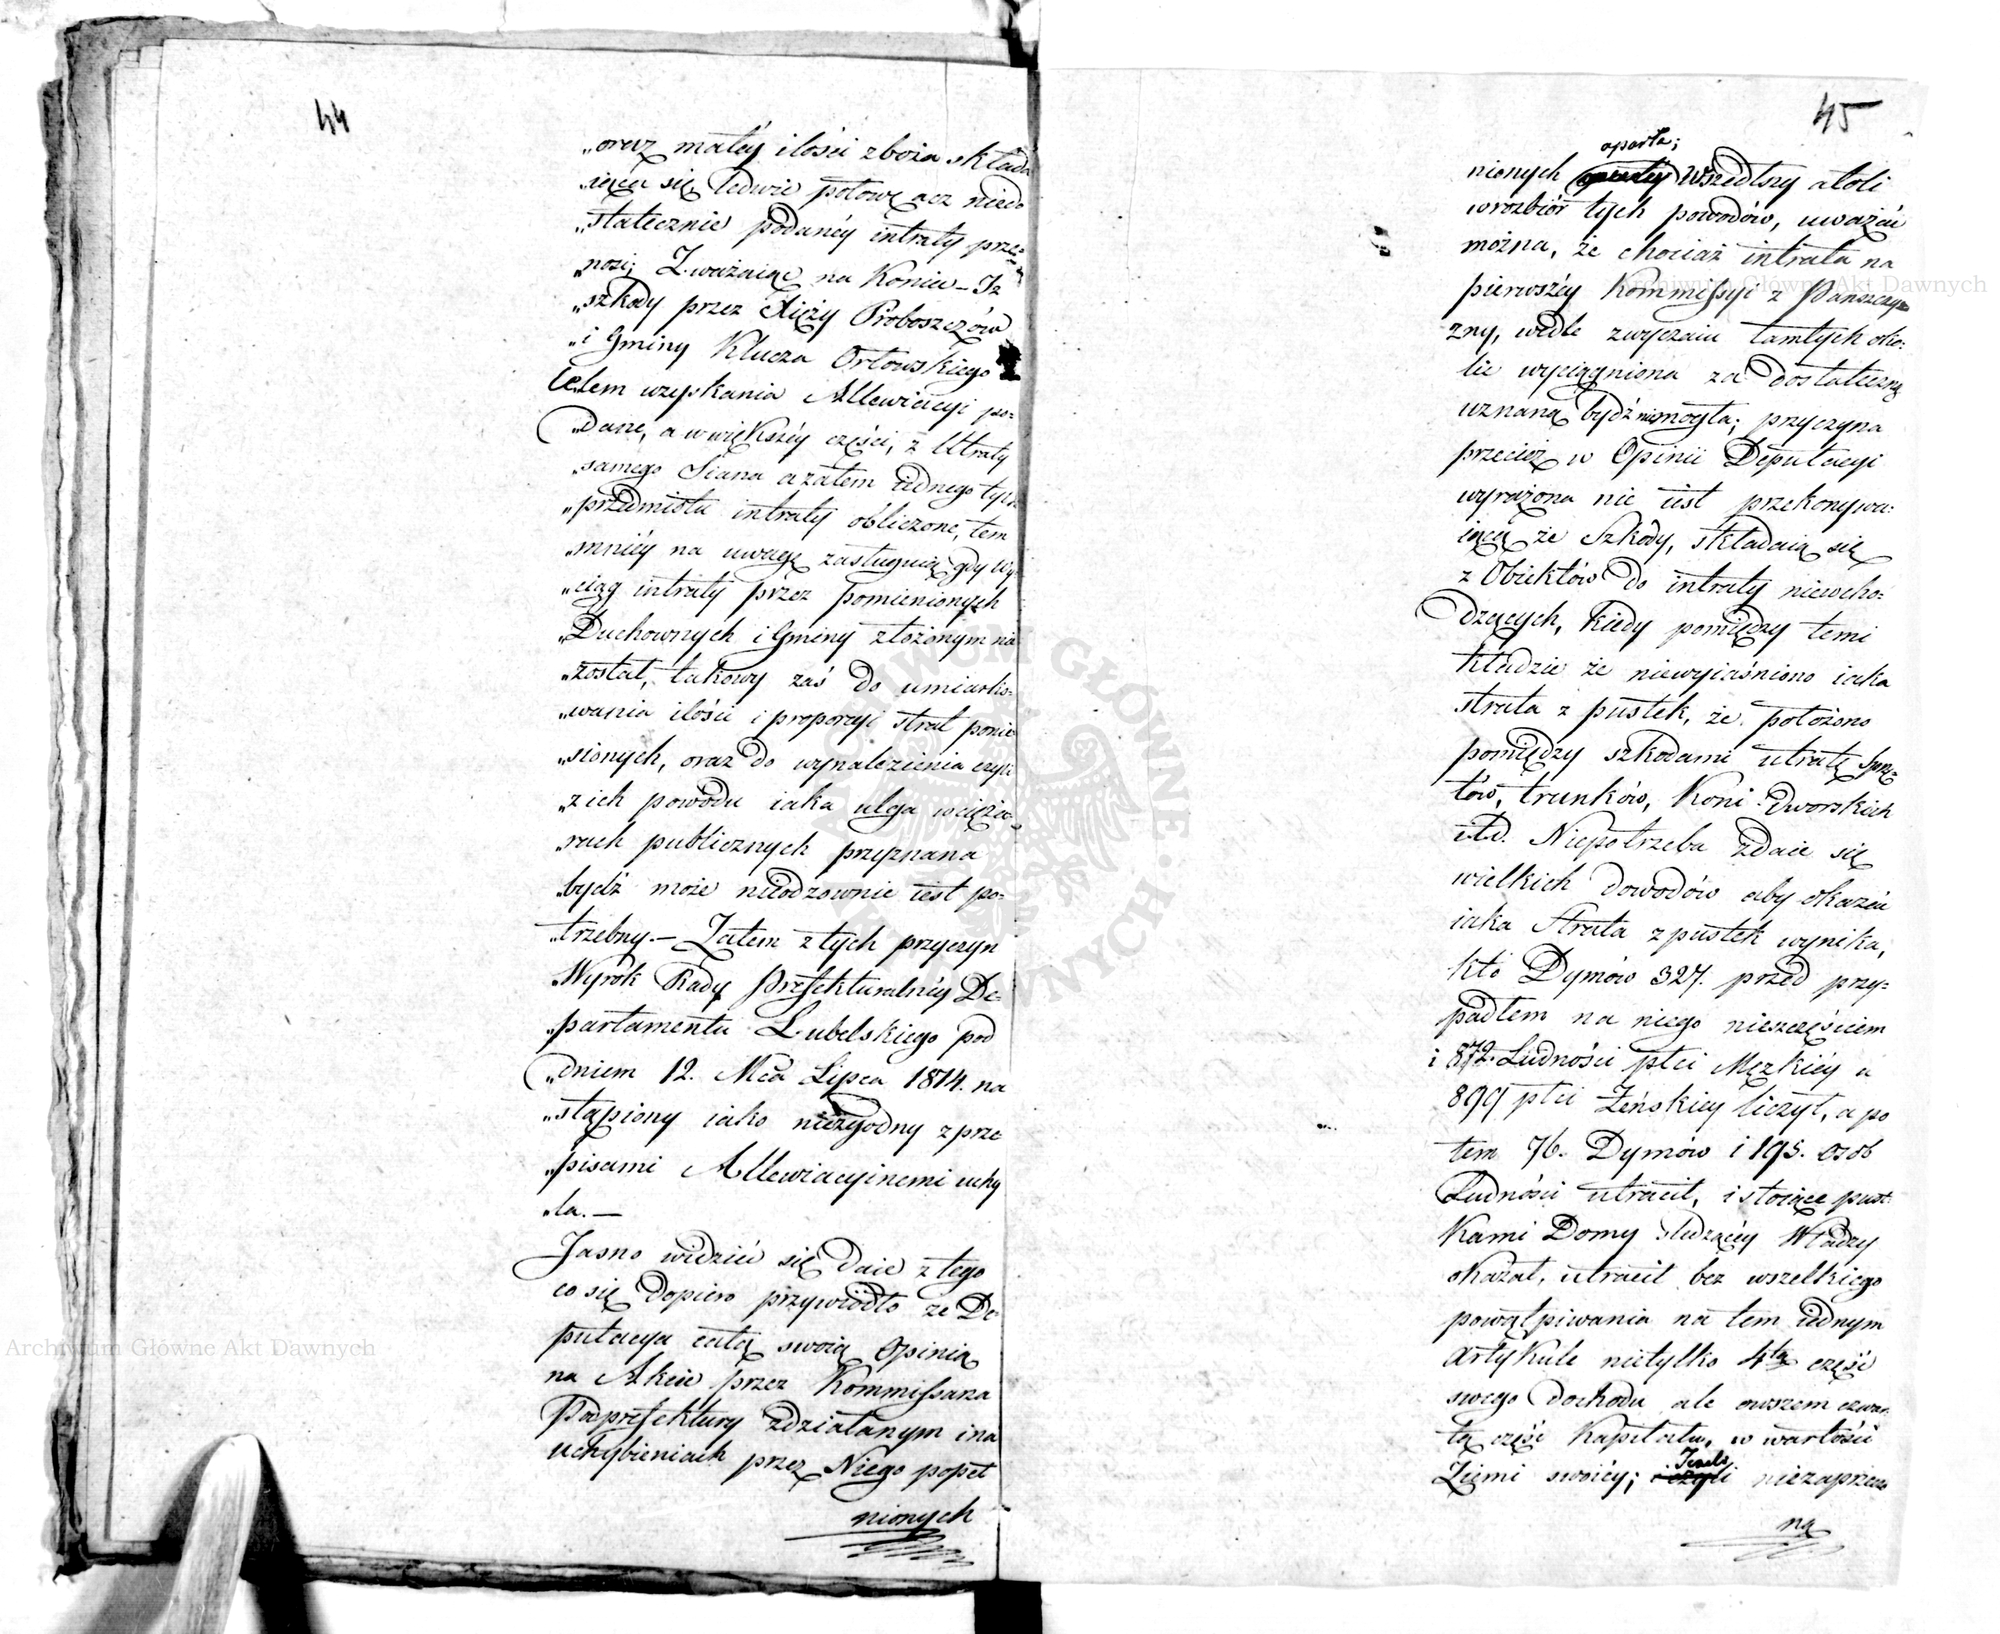 44
„oraz małéy ilości zboża składa
„iącéy się ledwie połowę acz niedo
„statecznie podanéy intraty prze-
„nosi; Zważaiąc na koniec – Iż
„szkody przez Xięży Proboszczów
„i Gminy Klucza Orłowskiego
celem uzyskania Allewiacyi po-
„dane, a w większéy części, z Utraty
„samego Siana a zatem iednego tylko
„przedmiotu intraty obliczone, tem
„mniéy na uwagę zasługuią gdy wy-
„ciąg intraty przez pomienionych
„Duchownych i Gminy złożonym nie
„został, takowy zaś do umiarko-
„wania ilości i proporcyi strat ponie
„sionych, oraz do wynalezienia czyli
„z ich powodu iaka ulga w cięża-
„rach publicznych przyznana
„bydź może nieodzownie iest po-
„trzebny. – Zatem z tych przyczyn
„Wyrok Rady Prefekturalnéy De-
„partamentu Lubelskiego pod
„dniem 12. Mca Lipca 1814. na
„stąpiony iako niezgodny z prze
„pisami Allewiacyinemi uchy
„la. –
Jasno widzieć się daie z tego
co się dopiero przywiodło ze De-
putacya całą swoią Opinią
na Akcie przez Kommissarza
Podprefektury zdziałanym i na
uchybieniach przez Niego popeł
nionych
45
oparła;
nionych Wszedłszy atoli
w rozbiór tych powodów, uważać
można, że chociaż intrata na
pierwszéy Kommissyi z Panszczy
zny, wedle zwyczaiu tamtych oko-
lic wyciągniona za dostateczną
uznaną bydź niemogła; przyczyna
przecież w Opinii Deputacyi
wyrażona nie iest przekonywa-
iącą że Szkody, składaią się
z Obiektów do intraty niewcho-
dzących, kiedy pomiędzy temi
kładzie że niewyiaśniono iaka
strata z pustek, że położono
pomiędzy szkodami utratę sprzę-
tów, trunków, Koni Dworskich
itd. Niepotrzeba zdaie się
wielkich dowodów aby okazać
iaka strata z pustek wynika,
kto Dymów 327. przed przy-
padłem na niego nieszczęściem
i 872. Ludności płci Męzkiéy a
899 płci Żeńskiey liczył, a po
tem 76. Dymów i 195. osob
Ludności utracił, i stoiące pust-
kami Domy śledzącéy Władzy
okazał, utracił bez wszelkiego
powątpiwania na tem iednym
artykule nietylko 4tą część
swego dochodu ale owszem czwar-
tą część Kapitału, w wartości
Ziemi swoiéy; Jeżeli niezaprzeczo
ną
Archiwum Główne Akt Dawnych
Archiwum Główne Akt Dawnych